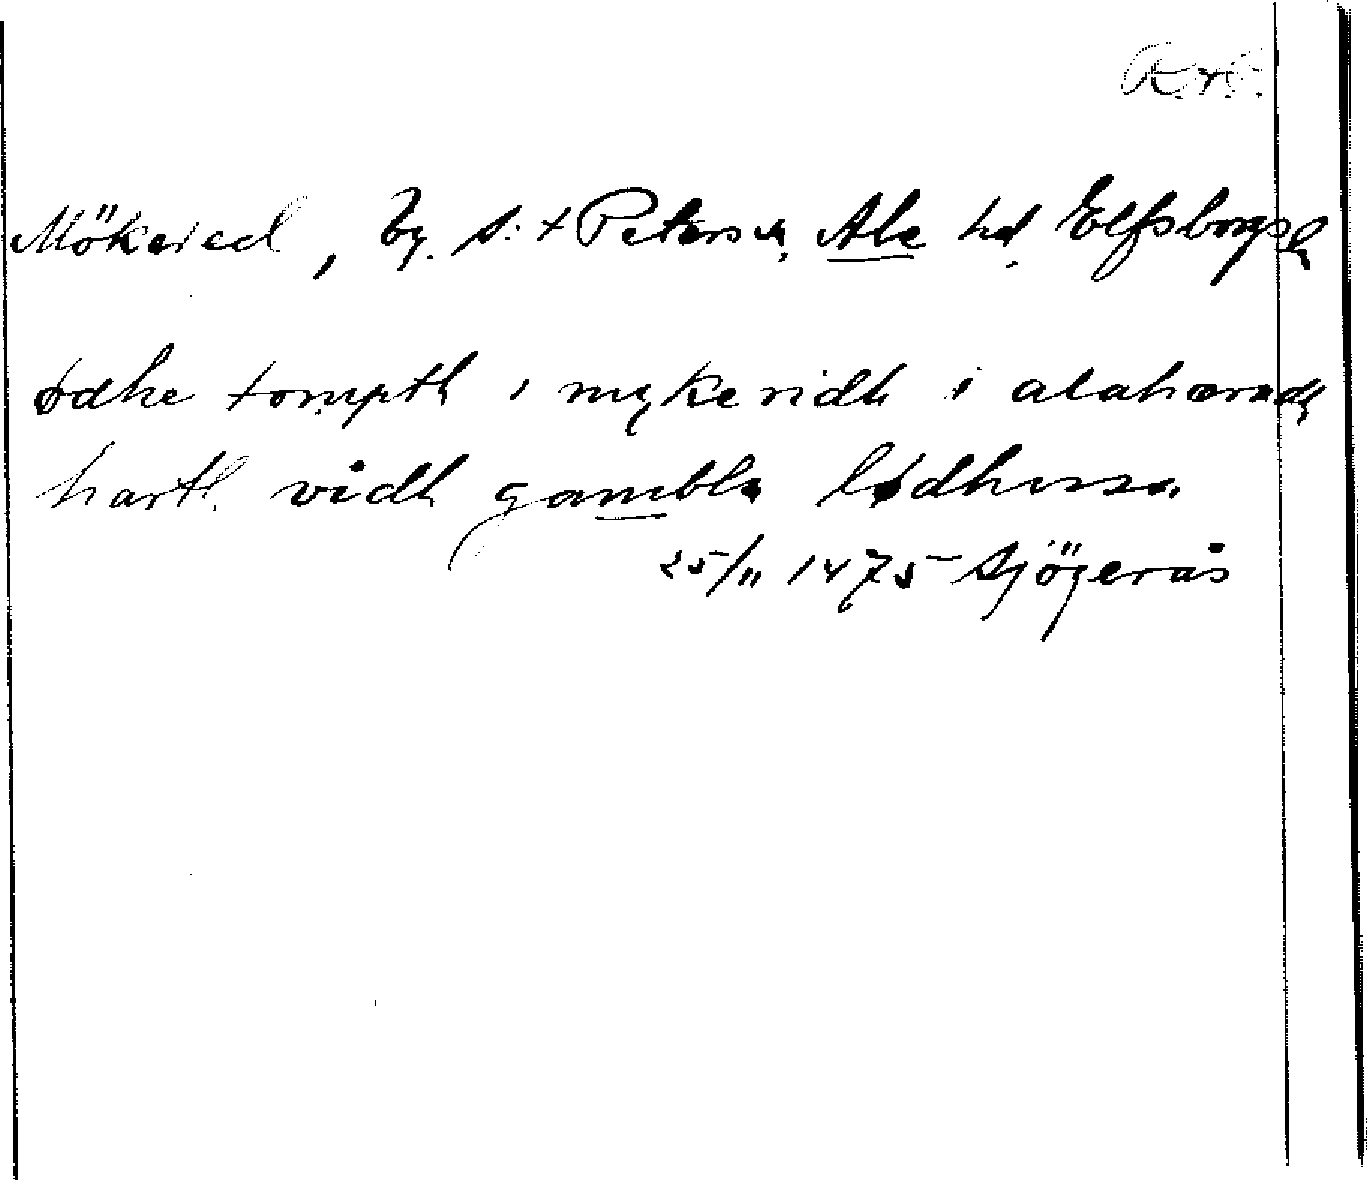 Mökered, By. S:t Peters sn, Ale hd, Elfsborgs l.
ødhe tompth i mykeridh i alahæradh
hartl vidh gambla lødhusa
25/11 1475 Sjögerås